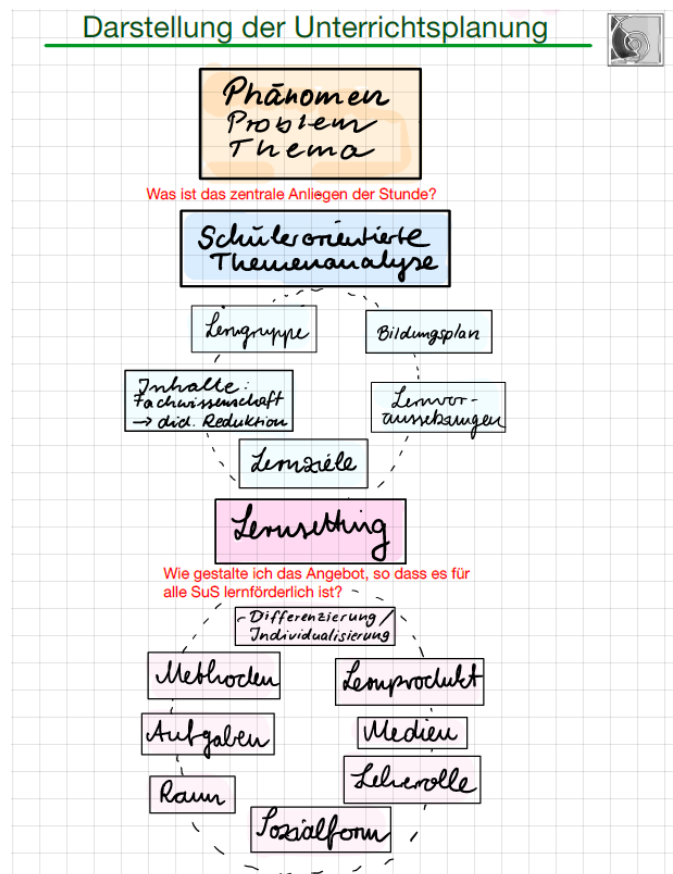 Darstellung der Unterrichtsplanung
Phänomen
Problem
Thema
Was ist das zentrale Anliegen der Stunde?
Schülerorientierte
Themenanalyse
Lerngruppe
Bildungsplan
Inhalte:
Fachwissenschaft
→ did. Reduktion
Lernvor-
aussetzungen
Lernziele
Lernsetting
Wie gestalte ich das Angebot, so dass es für
alle SuS lernförderlich ist?
- Differenzierung/
Individualisierung
Methoden
Lernprodukt
Aufgaben
Medien
Raum
Lehrerolle
Sozialform